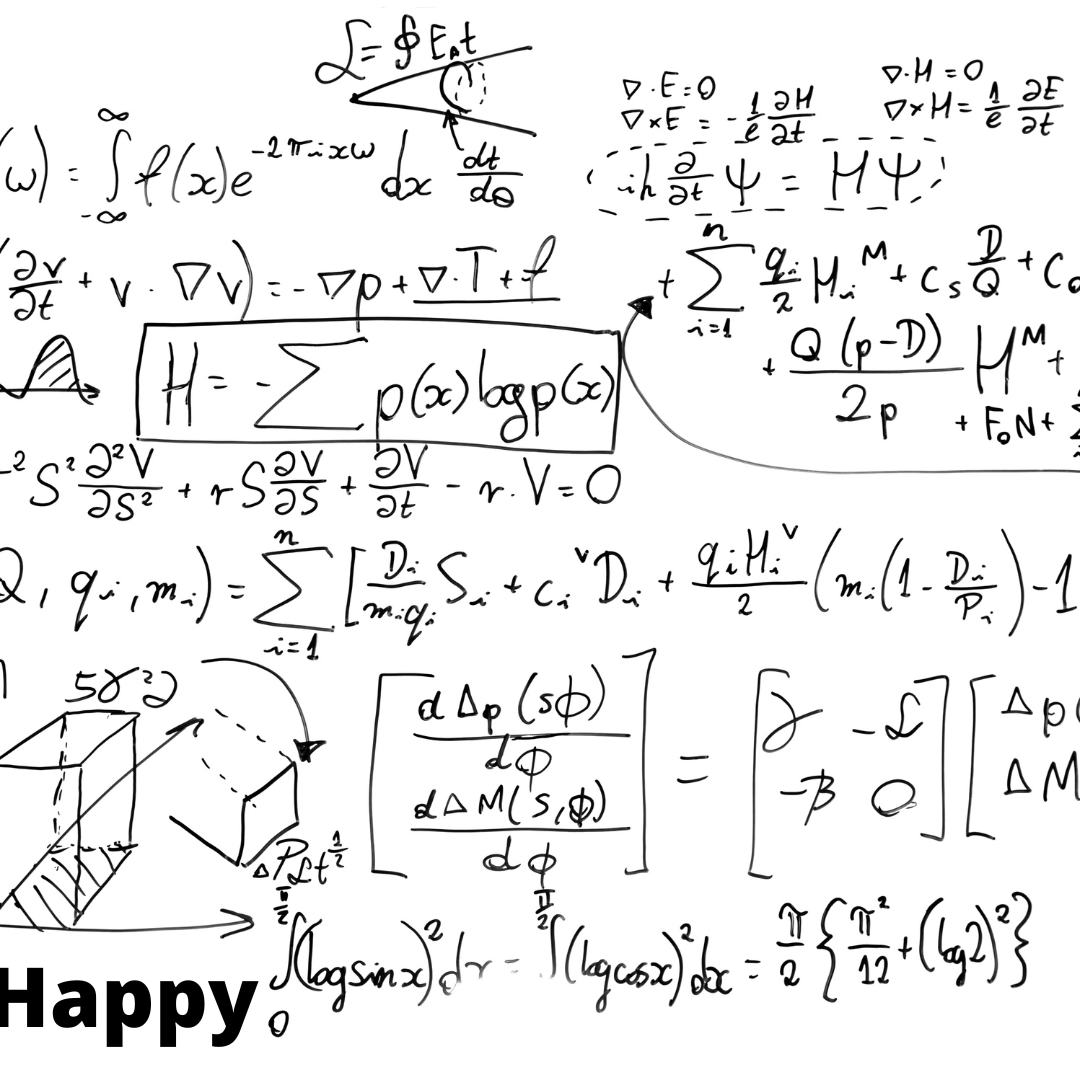 ℒ = ∮ E. t
∇·E=0
∇×E = -1/e ∂H/∂t
∇·H=0
∇×H = 1/e ∂E/∂t
(ω) = ∫_{-∞}^{∞} f(x)e^{-2πixω} dx dt/dθ
ih ∂/∂t Ψ = HΨ
(∂v/∂t + v·∇v) = -∇p + ∇·T + f
+ ∑_{i=1}^{n} q_i/2 H_i^M + c_s D/Q + c_o
+ Q(p-D)/2p H^M +
+ F_oN +
H = -∑ p(x) log p(x)
^2 S² ∂²V/∂S² + rS ∂V/∂S + ∂V/∂t - r·V = 0
Q, q_i, m_i) = ∑_{i=1}^{n} [D_i/m_iq_i S_i + c_i^v D_i + q_iH_i^v/2 (m_i(1 - D_i/P_i) - 1
5γ²∂
[dΔp(sϕ)/dϕ dΔM(s,ϕ)/dϕ] = [γ -ℒ -β 0] [Δp( ΔM
ΔPℒt^{1/2}
∫_0^{π/2} (log sin x)² dx = ∫^{π/2} (log cos x)² dx = π/2 {π²/12 + (log 2)²}
Happy